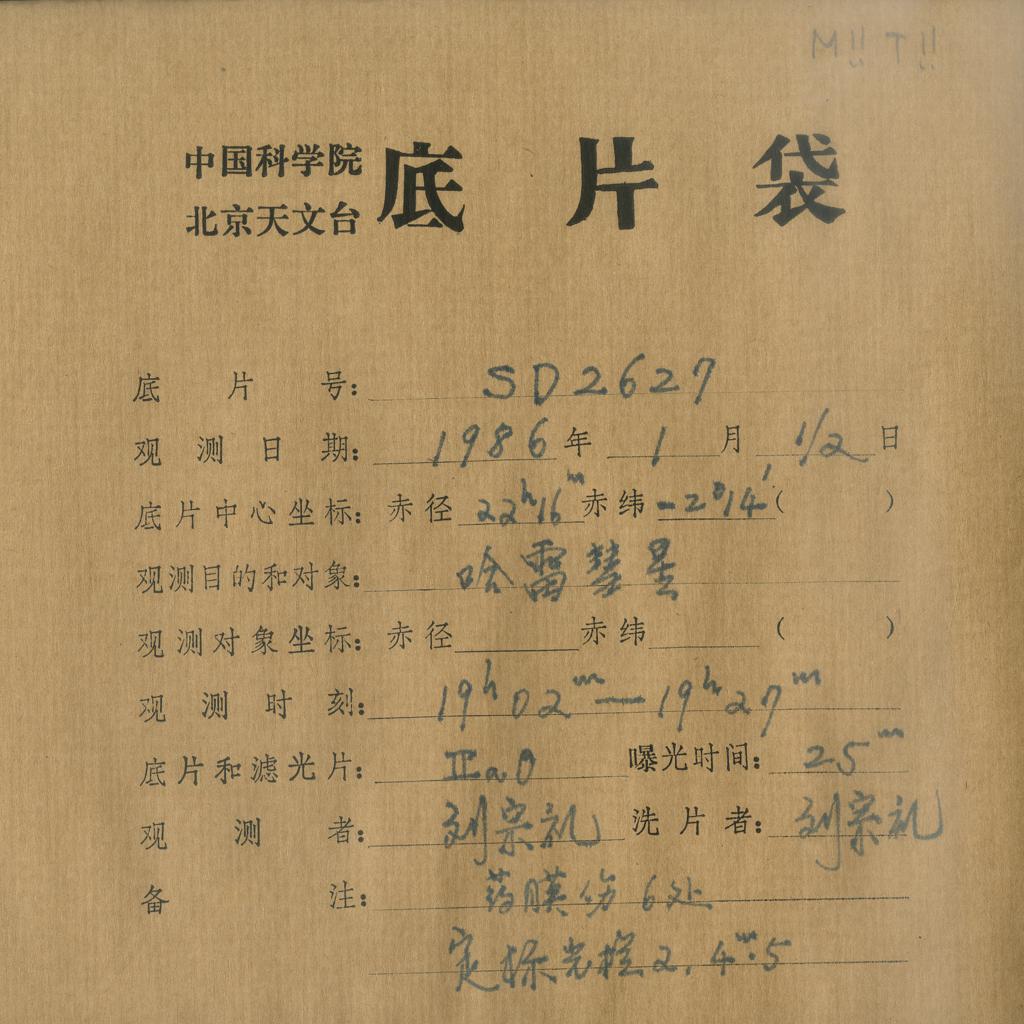 中国科学院
北京天文台
底片袋
底片号: SD2627
观测日期: 1986年 1 月 1/2 日
底片中心坐标: 赤径 22ʰ16ᵐ 赤纬 -2°14′ ( )
观测目的和对象: 哈雷彗星
观测对象坐标: 赤径 赤纬 ( )
观测时刻: 19ʰ02ᵐ—19ʰ27ᵐ
底片和滤光片: IIaO 曝光时间: 25ᵐ
观测者: 刘宗礼 洗片者: 刘宗礼
备注: 药膜伤6处
定标光楔2, 4ᵐ.5